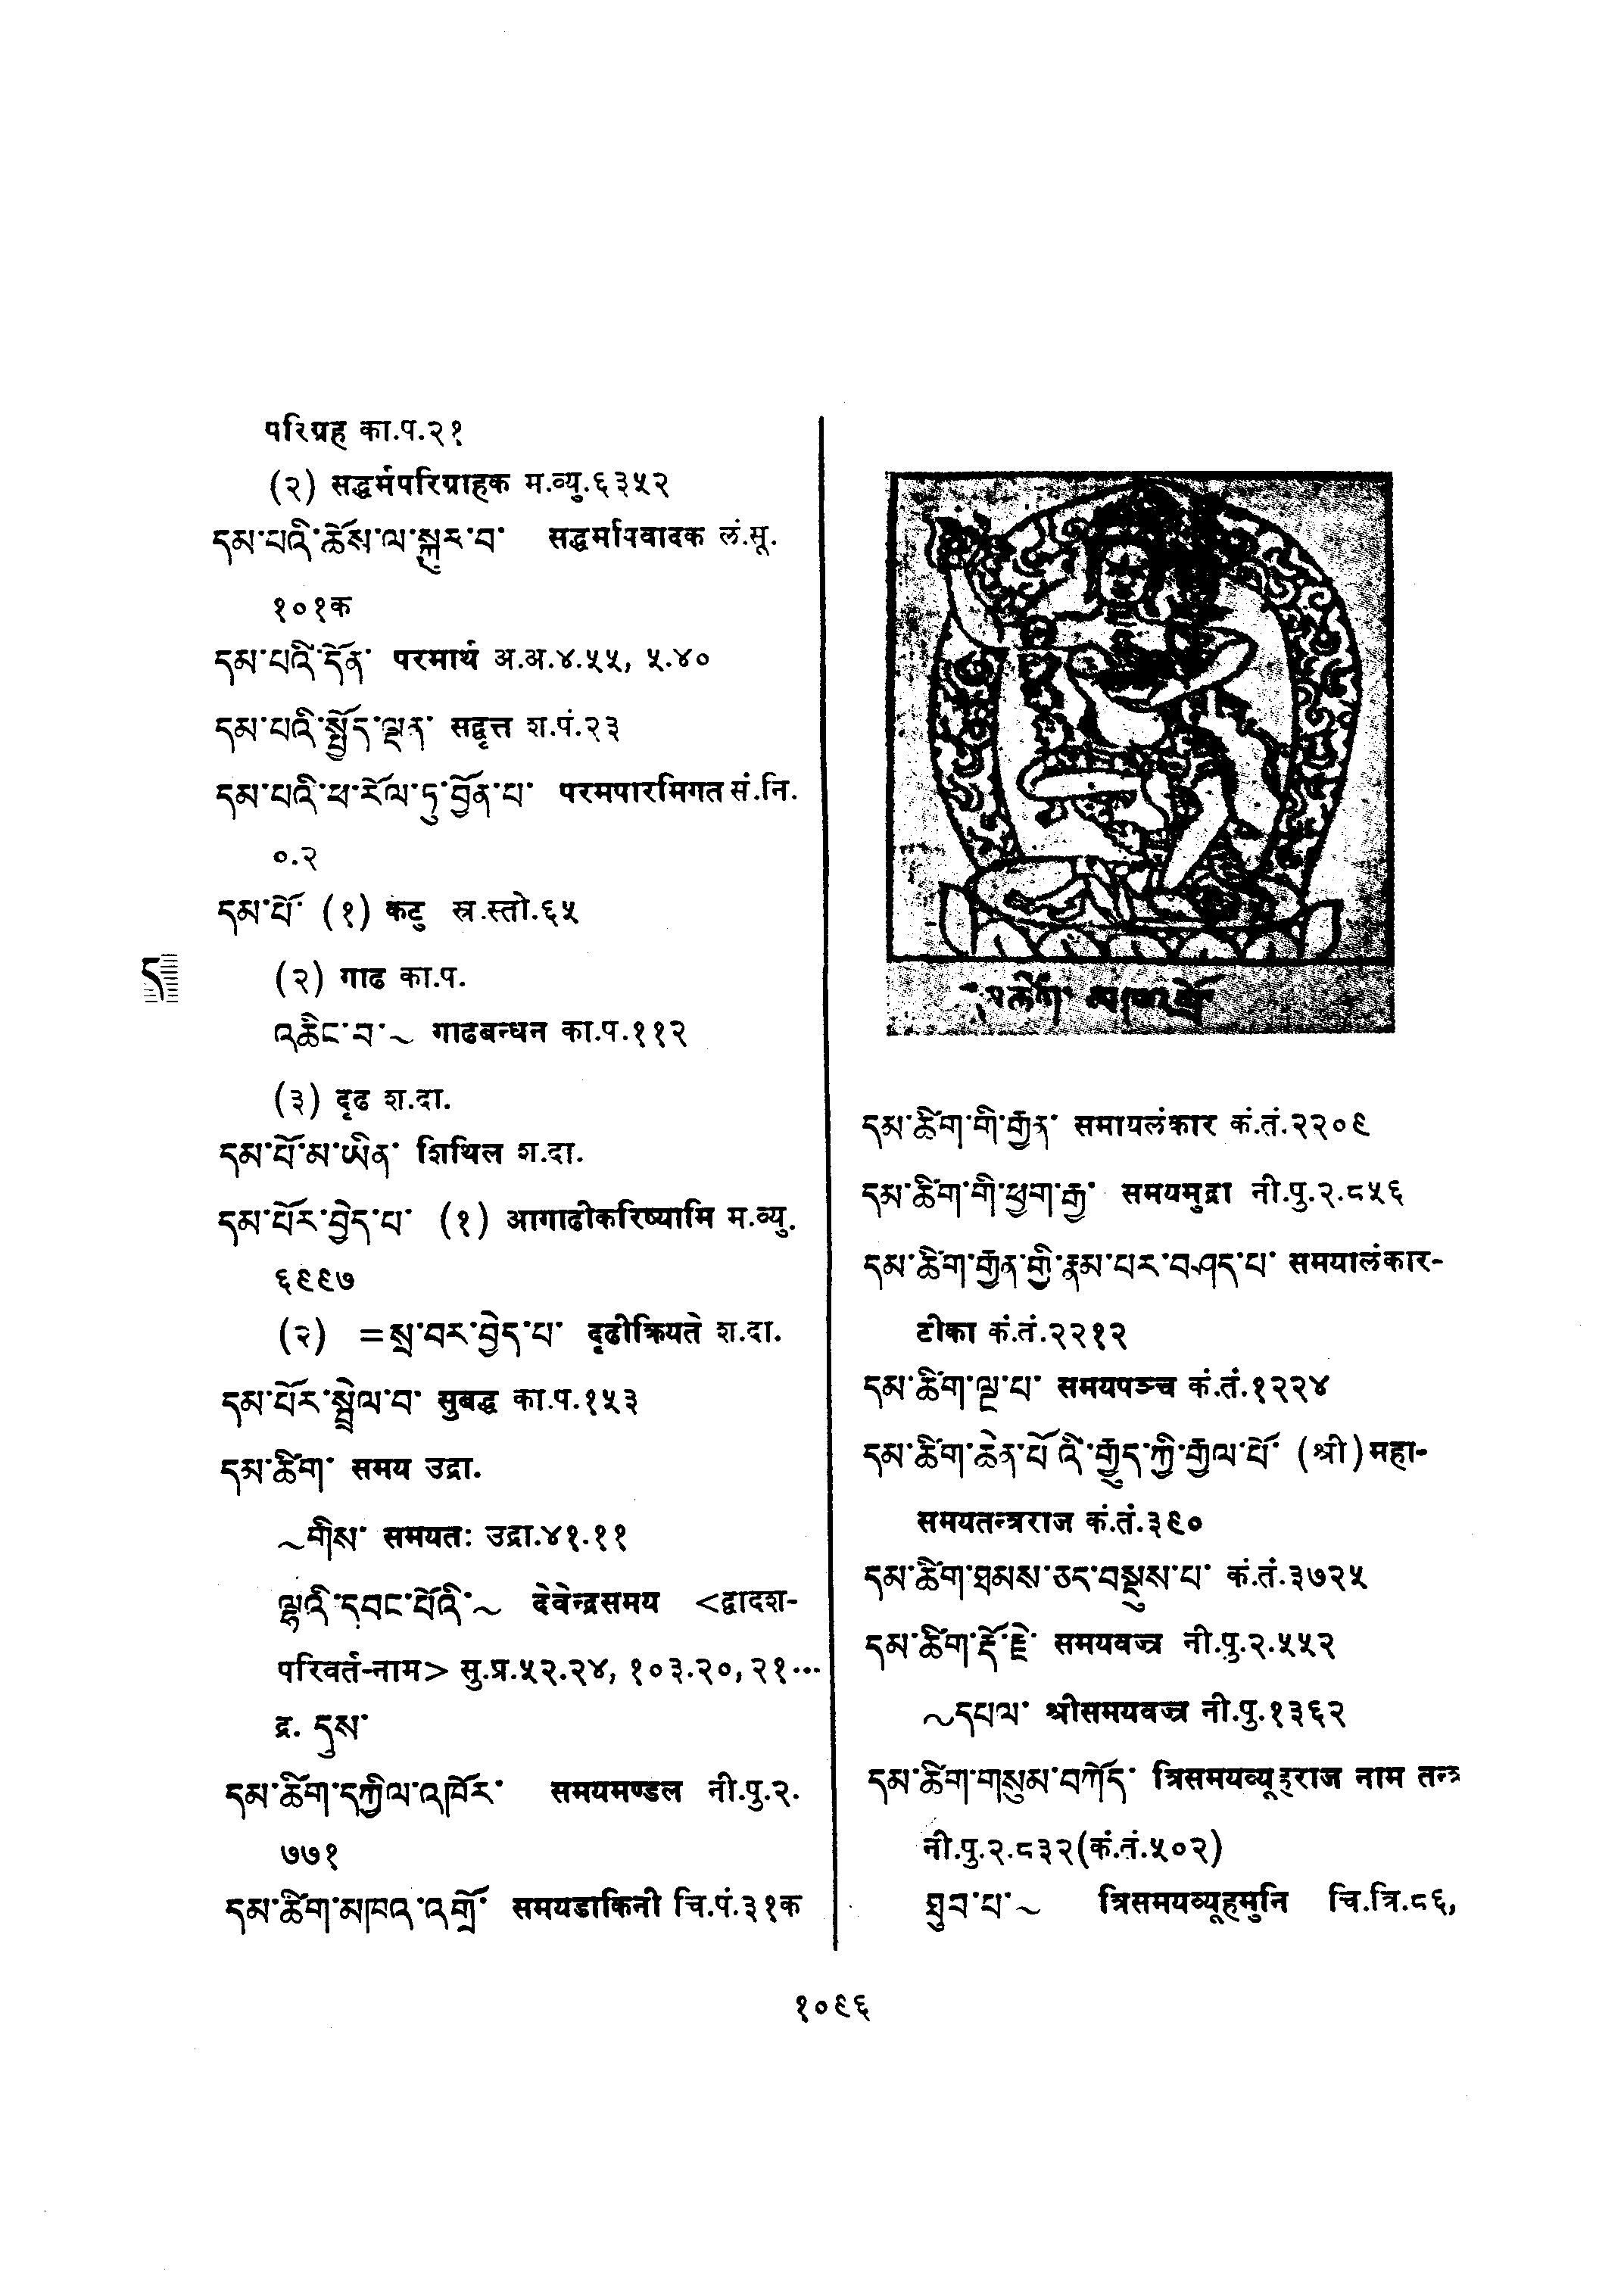 परिग्रह का.प.२१
(२) सद्धर्मपरिग्राहक म.व्यु.६३५२
དམ་པའི་ཆོས་ལ་སྐུར་བ་ सद्धर्मापवादक लं.सू.
१०१क
དམ་པའི་དོན་ परमार्थ अ.अ.४.५५, ५.४०
དམ་པའི་སྤྱོད་ལྡན་ सद्वृत्त श.पं.२३
དམ་པའི་ཕ་རོལ་ཏུ་བྱོན་པ་ परमपारमिगत सं.नि.
०.२
དམ་པོ་ (१) कटु स्र.स्तो.६५
(२) गाढ का.प.
འཆིང་བ་~ गाढबन्धन का.प.११२
(३) दृढ श.दा.
དམ་པོ་མ་ཡིན་ शिथिल श.दा.
དམ་པོར་བྱེད་པ་ (१) आगाढीकरिष्यामि म.व्यु.
६९९७
(२) =སྲ་བར་བྱེད་པ་ दृढीक्रियते श.दा.
དམ་པོར་སྦྲེལ་བ་ सुबद्ध का.प.१५३
དམ་ཚིག་ समय उद्रा.
~གིས་ समयतः उद्रा.४१.११
ལྷའི་དབང་པོའི་~ देवेन्द्रसमय <द्वादश-
परिवर्त-नाम> सु.प्र.५२.२४, १०३.२०, २१...
द्र. དུས་
དམ་ཚིག་དཀྱིལ་འཁོར་ समयमण्डल नी.पु.२.
७७१
དམ་ཚིག་མཁའ་འགྲོ་ समयडाकिनी चि.पं.३१क
ད
དམ་ཚིག་གི་རྒྱན་ समायलंकार कं.तं.२२०९
དམ་ཚིག་གི་ཕྱག་རྒྱ་ समयमुद्रा नी.पु.२.८५६
དམ་ཚིག་རྒྱན་གྱི་རྣམ་པར་བཤད་པ་ समयालंकार-
टीका कं.तं.२२१२
དམ་ཚིག་ལྔ་པ་ समयपञ्च कं.तं.१२२४
དམ་ཚིག་ཆེན་པོ་འི་རྒྱུད་ཀྱི་རྒྱལ་པོ་ (श्री) महा-
समयतन्त्रराज कं.तं.३९०
དམ་ཚིག་ཐམས་ཅད་བསྡུས་པ་ कं.तं.३७२५
དམ་ཚིག་རྡོ་རྗེ་ समयवज्र नी.पु.२.५५२
~དཔལ་ श्रीसमयवज्र नी.पु.१३६२
དམ་ཚིག་གསུམ་བཀོད་ त्रिसमयव्यूहराज नाम तन्त्र
नी.पु.२.८३२(कं.तं.५०२)
ཐུབ་པ་~ त्रिसमयव्यूहमुनि चि.त्रि.८६,
१०९६